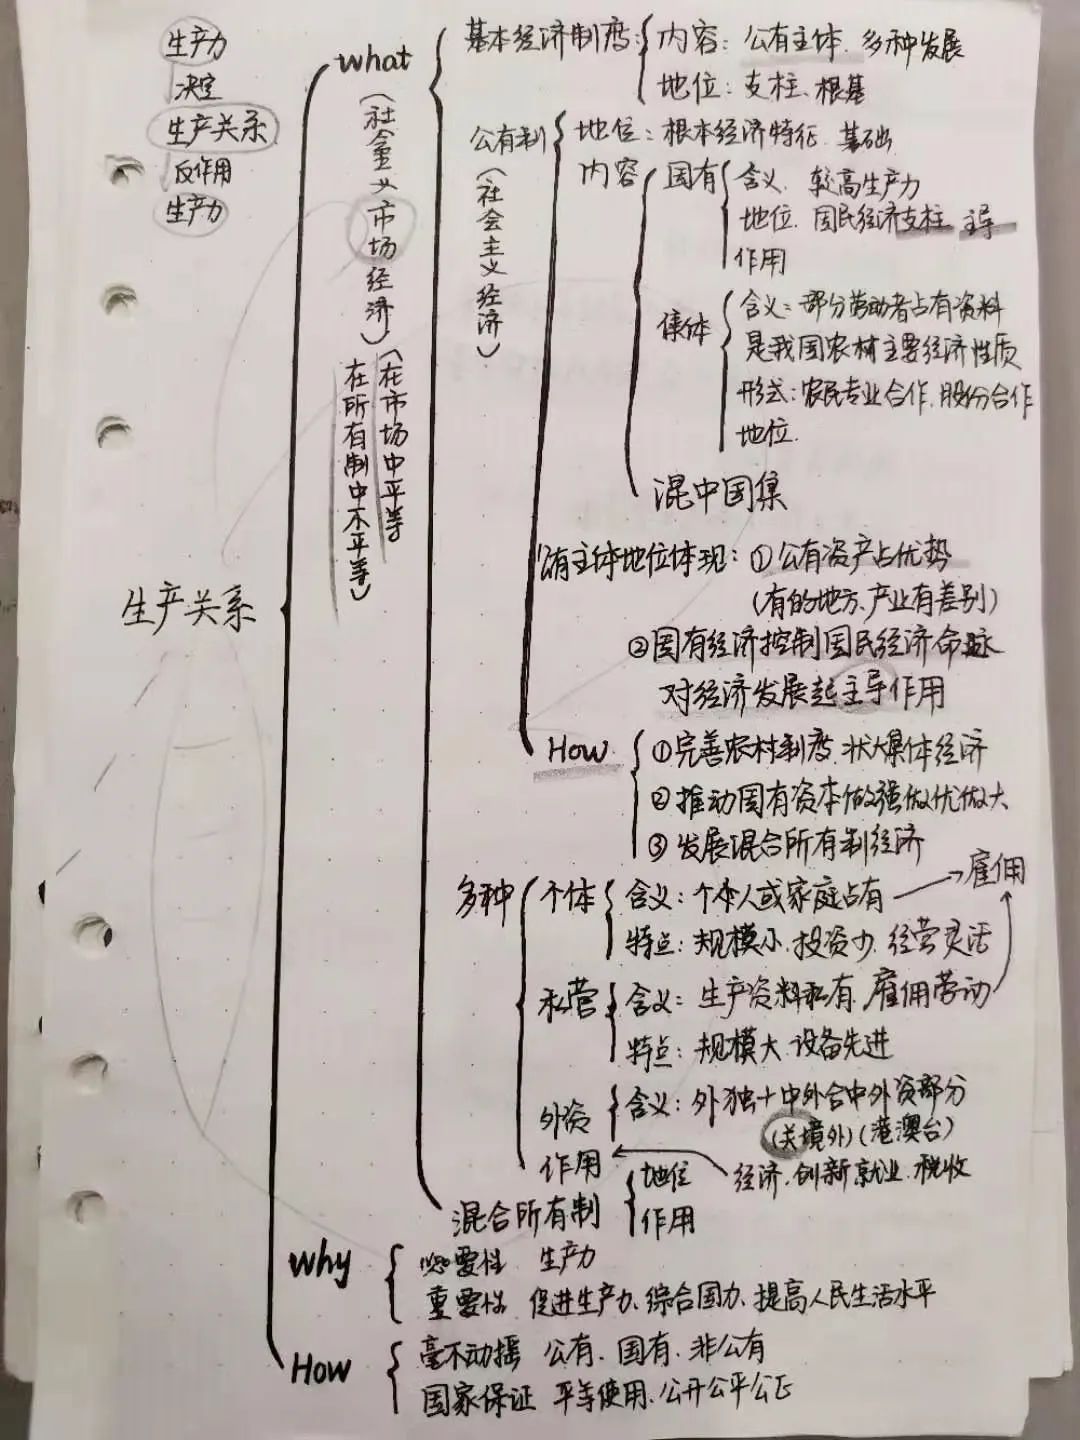 生产力
决定
生产关系
反作用
生产力
生产关系
what
(社会主义市场经济)
(在市场中平等
在所有制中不平等)
基本经济制度:
内容: 公有主体. 多种发展
地位: 支柱、根基
公有制
(社会主义经济)
地位: 根本经济特征. 基础
内容
国有
含义. 较高生产力
地位. 国民经济支柱 主导
作用
集体
含义: 部分劳动者占有资料
是我国农村主要经济性质
形式: 农民专业合作. 股份合作
地位.
混中国集
公有主体地位体现: ①公有资产占优势
(有的地方、产业有差别)
②国有经济控制国民经济命脉
对经济发展起主导作用
How
①完善农村制度. 状大集体经济
②推动国有资本做强做优做大
③发展混合所有制经济
多种
个体
含义: 个体人或家庭占有 → 雇佣
特点: 规模小. 投资少. 经营灵活
私营
含义: 生产资料私有. 雇佣劳动
特点: 规模大 设备先进
外资
含义: 外独+中外合中外资部分
(关境外)(港澳台)
作用
经济. 创新 就业. 税收
混合所有制
地位
作用
Why
必要性 生产力
重要性 促进生产力、综合国力、提高人民生活水平
How
毫不动摇 公有. 国有. 非公有
国家保证 平等使用. 公开公平公正